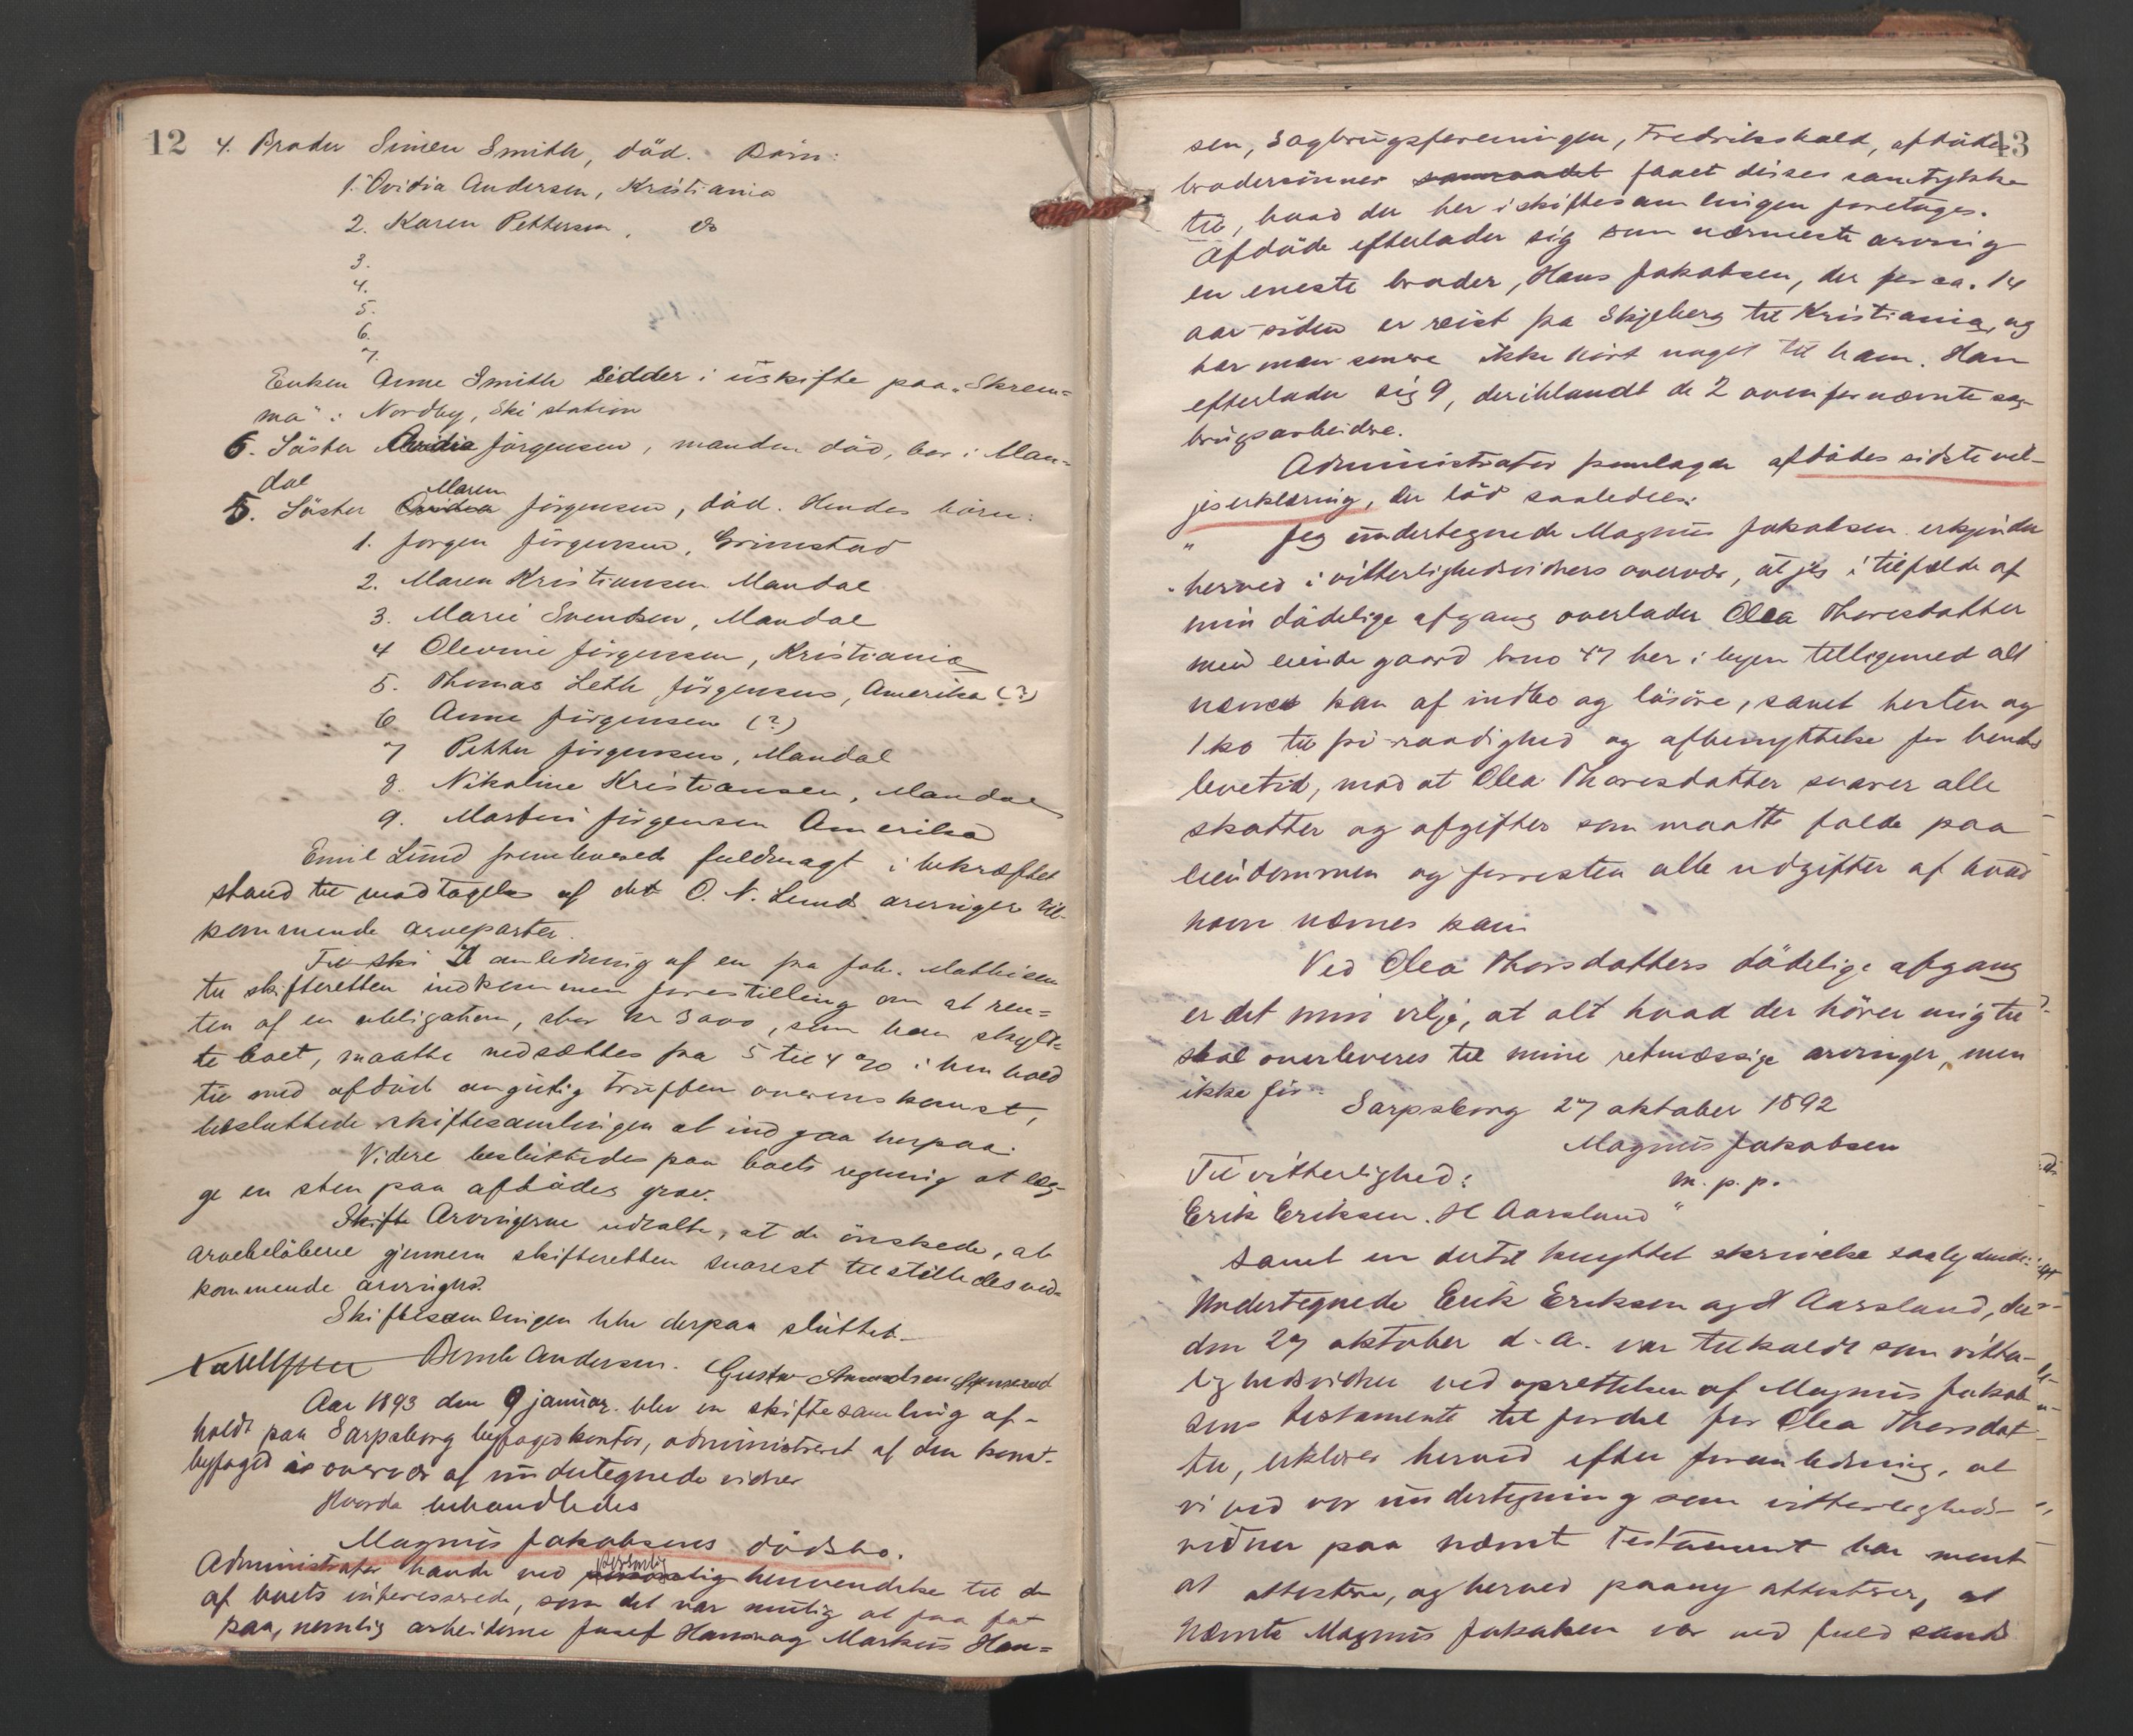 12
4. Broder Simen Smith, död. Börn:
1. Ovidia Andersen, Kristiania
2. Karen Pettersen, do
3.
4.
5.
6.
7.
Enken Anne Smith sidder i uskifte paa „Skrem-
ma": Nordby, Ski station
6. Söster Ovidia Jörgensen, manden död, bor i Man-
dal
Maren
5. Söster Ovidia Jörgensen, död. Hendes börn:
1. Jorgen Jörgensen, Grimstad
2. Maren Kristiansen Mandal
3. Marie Svendsen, Mandal
4 Olevine Jörgensen, Kristiania
5. Thomas Leth Jörgensen, Amerika (?)
6 Anne Jörgensen (?)
7 Petter Jörgensen, Mandal
8. Nikoline Kristiansen, Mandal
9. Martin Jörgensen Amerika
Emil Lund fremleverede fuldmagt i bekræftet
stand til modtagelse af det O. N. Lunds arvinger til-
kommende arveparter.
Til ski I anledning af en fra Joh. Mathisen
til skifteretten indkommen forestilling om at ren-
ten af en obligation, stor kr 3000, som han skyld-
te boet, maatte nedsættes fra 5 til 4 % i henhold
til med afdöde angivelig truffen overenskomst,
besluttede skiftesamlingen at indgaa herpaa.
Videre besluttedes paa boets regning at læg-
ge en sten paa afdödes grav.
Skifte Arvingerne udtalte, at de önskede, at
arvebelöbene gjennem skifteretten snarest tilstilledes ved-
kommende arvinger.
Skiftesamlingen blev derpaa sluttet.
Bernh Andersen. Gustav
Aar 1893 den 9 januar blev en skiftesamling af-
holdt paa Sarpsborg byfogedkontor, administreret af den konst.
byfoged i overvær af undertegnede vidner
Hvorda behandledes
Magnus Jakobsens dödsbo.
personlig
Administrator havde ved henvendelse til de
af boets interesserede, som det var mulig at faa fat
paa, nemlig arbeiderne Josef Hansen og Markus Han-
13
sen, Sagbrugsforeningen, Fredrikshald, afdödes
brodersönner faaet disses samtykke
til, hvad der her i skiftesamlingen foretages.
Afdöde efterlader sig som nærmeste arving
en eneste broder, Hans Jakobsen, der for ca. 14
aar siden er reist fra Skjeberg til Kristiania, og
har man senere ikke hört noget til ham. Han
efterlader sig 9, deriblandt de 2 ovenfor nævnte sag-
brugsarbeidere.
Administrator fremlagde afdödes sidste vil-
jeserklæring, der löd saaledes:
„ Jeg undertegnede Magnus Jakobsen erkjender
herved i vitterlighedsvidners overvær, at jeg i tilfælde af
min dödelige afgang overlader Olea Thoresdatter
min eiende gaard bno 47 her i byen tilligemed alt
nævnes kan af indbo og lösöre, samt hesten og
1 ko til fri raadighed og afbenyttelse for hendes
levetid, mod at Olea Thoresdatter svarer alle
skatter og afgifter som maatte falde paa
eiendommen og forresten alle udgifter af hvad
navn nævnes kan.
Ved Olea Thorsdatters dödelige afgang
er det min vilje, at alt hvad der hörer mig til
skal overleveres til mine retmæssige arvinger, men
ikke för.
Sarpsborg 27 oktober 1892
Magnus Jakobsen
Til vitterlighed: m. p. p.
Erik Eriksen. H Aarsland "
samt en dertil knyttet skrivelse saalydende:
Undertegnede Erik Eriksen og H Aarsland, der
den 27 oktober d. a. var tilkaldt som vitter-
lighedsvidner ved oprettelsen af Magnus Jakob-
sens testamente til fordel for Olea Thorsdat-
ter, erklærer herved efter foranledning, at
vi ved vor undertegning som vitterligheds-
vidner paa nævnt testament har ment
at attestere, og herved paany attesterer, at
nævnte Magnus Jakobsen var ved fuld sands